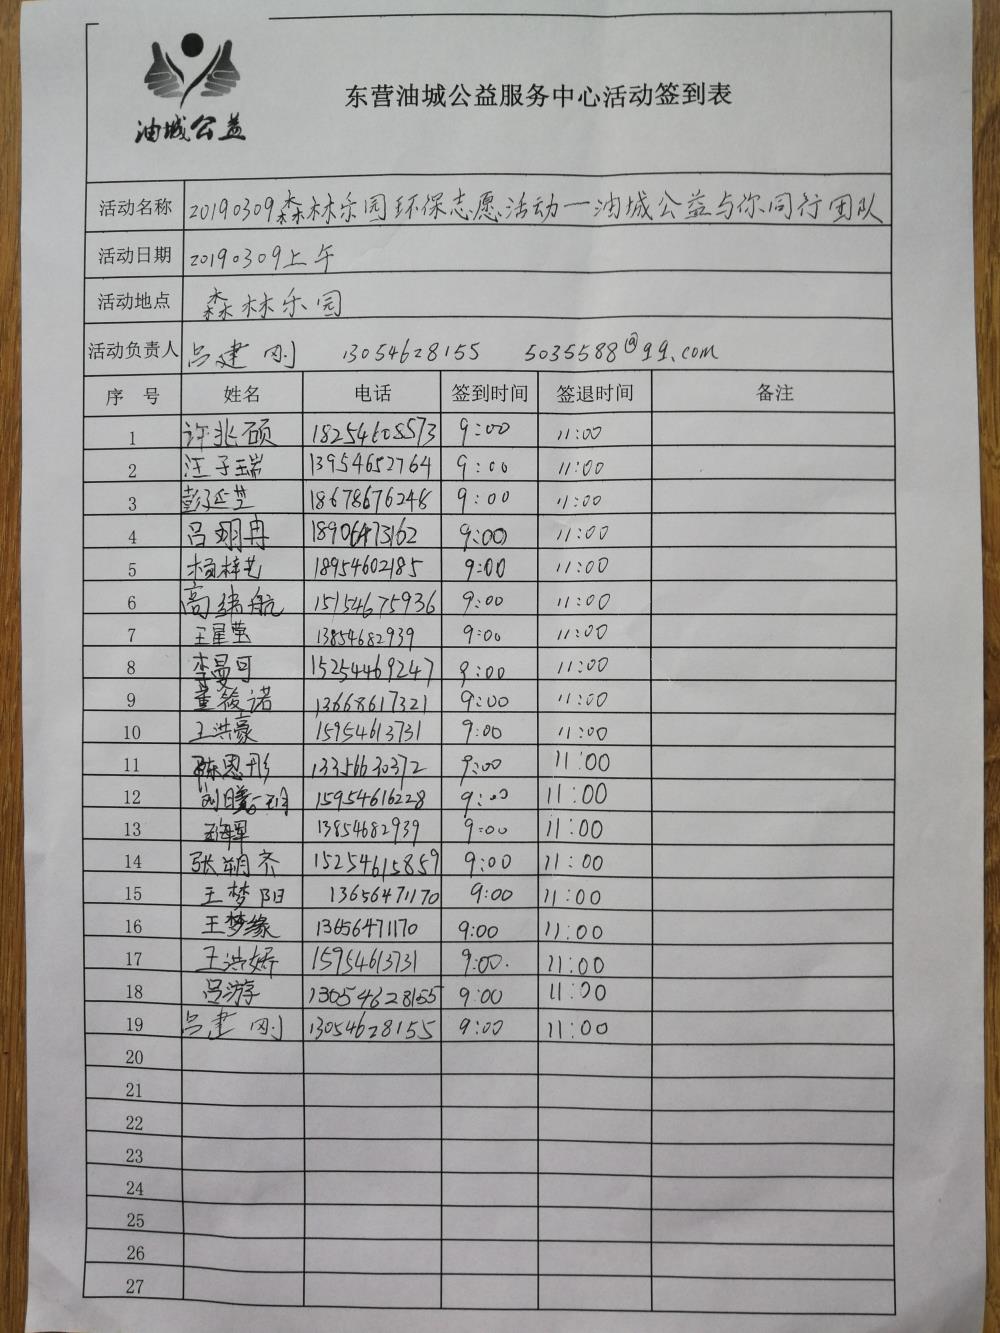 油城公益
东营油城公益服务中心活动签到表
活动名称 20190309森林乐园环保志愿活动—油城公益与你同行团队
活动日期 20190309上午
活动地点 森林乐园
活动负责人 吕建刚 13054628155 5035588@qq.com
序号 姓名 电话 签到时间 签退时间 备注
1 许兆硕 18254608573 9:00 11:00
2 汪子瑞 13954652764 9:00 11:00
3 彭延芝 18678676248 9:00 11:00
4 吕翊冉 18906473162 9:00 11:00
5 杨梓艺 18954602185 9:00 11:00
6 高纬航 15154675936 9:00 11:00
7 王星莹 13854682939 9:00 11:00
8 李曼可 15254469247 9:00 11:00
9 董筱诺 13668617321 9:00 11:00
10 王洪豪 15954613731 9:00 11:00
11 陈恩彤 13356630372 9:00 11:00
12 15954616228 9:00 11:00
13 13854682939 9:00 11:00
14 张朔齐 15254615859 9:00 11:00
15 王梦阳 13656471170 9:00 11:00
16 王梦缘 13656471170 9:00 11:00
17 王洪娇 15954613731 9:00. 11:00
18 吕游 13054628155 9:00 11:00
19 吕建刚 13054628155 9:00 11:00
20
21
22
23
24
25
26
27